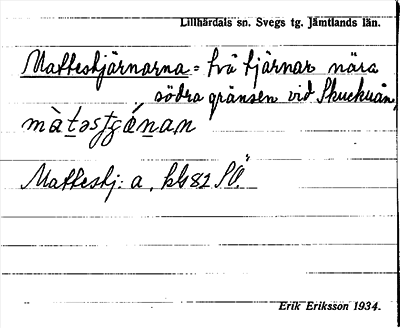 Lillhärdals sn. Svegs tg. Jämtlands län.
Mattestjärnarna = två tjärnar nära
södra gränsen vid Skuckuån,
Mattestj: a, bl 82 SÖ
Erik Eriksson 1934.